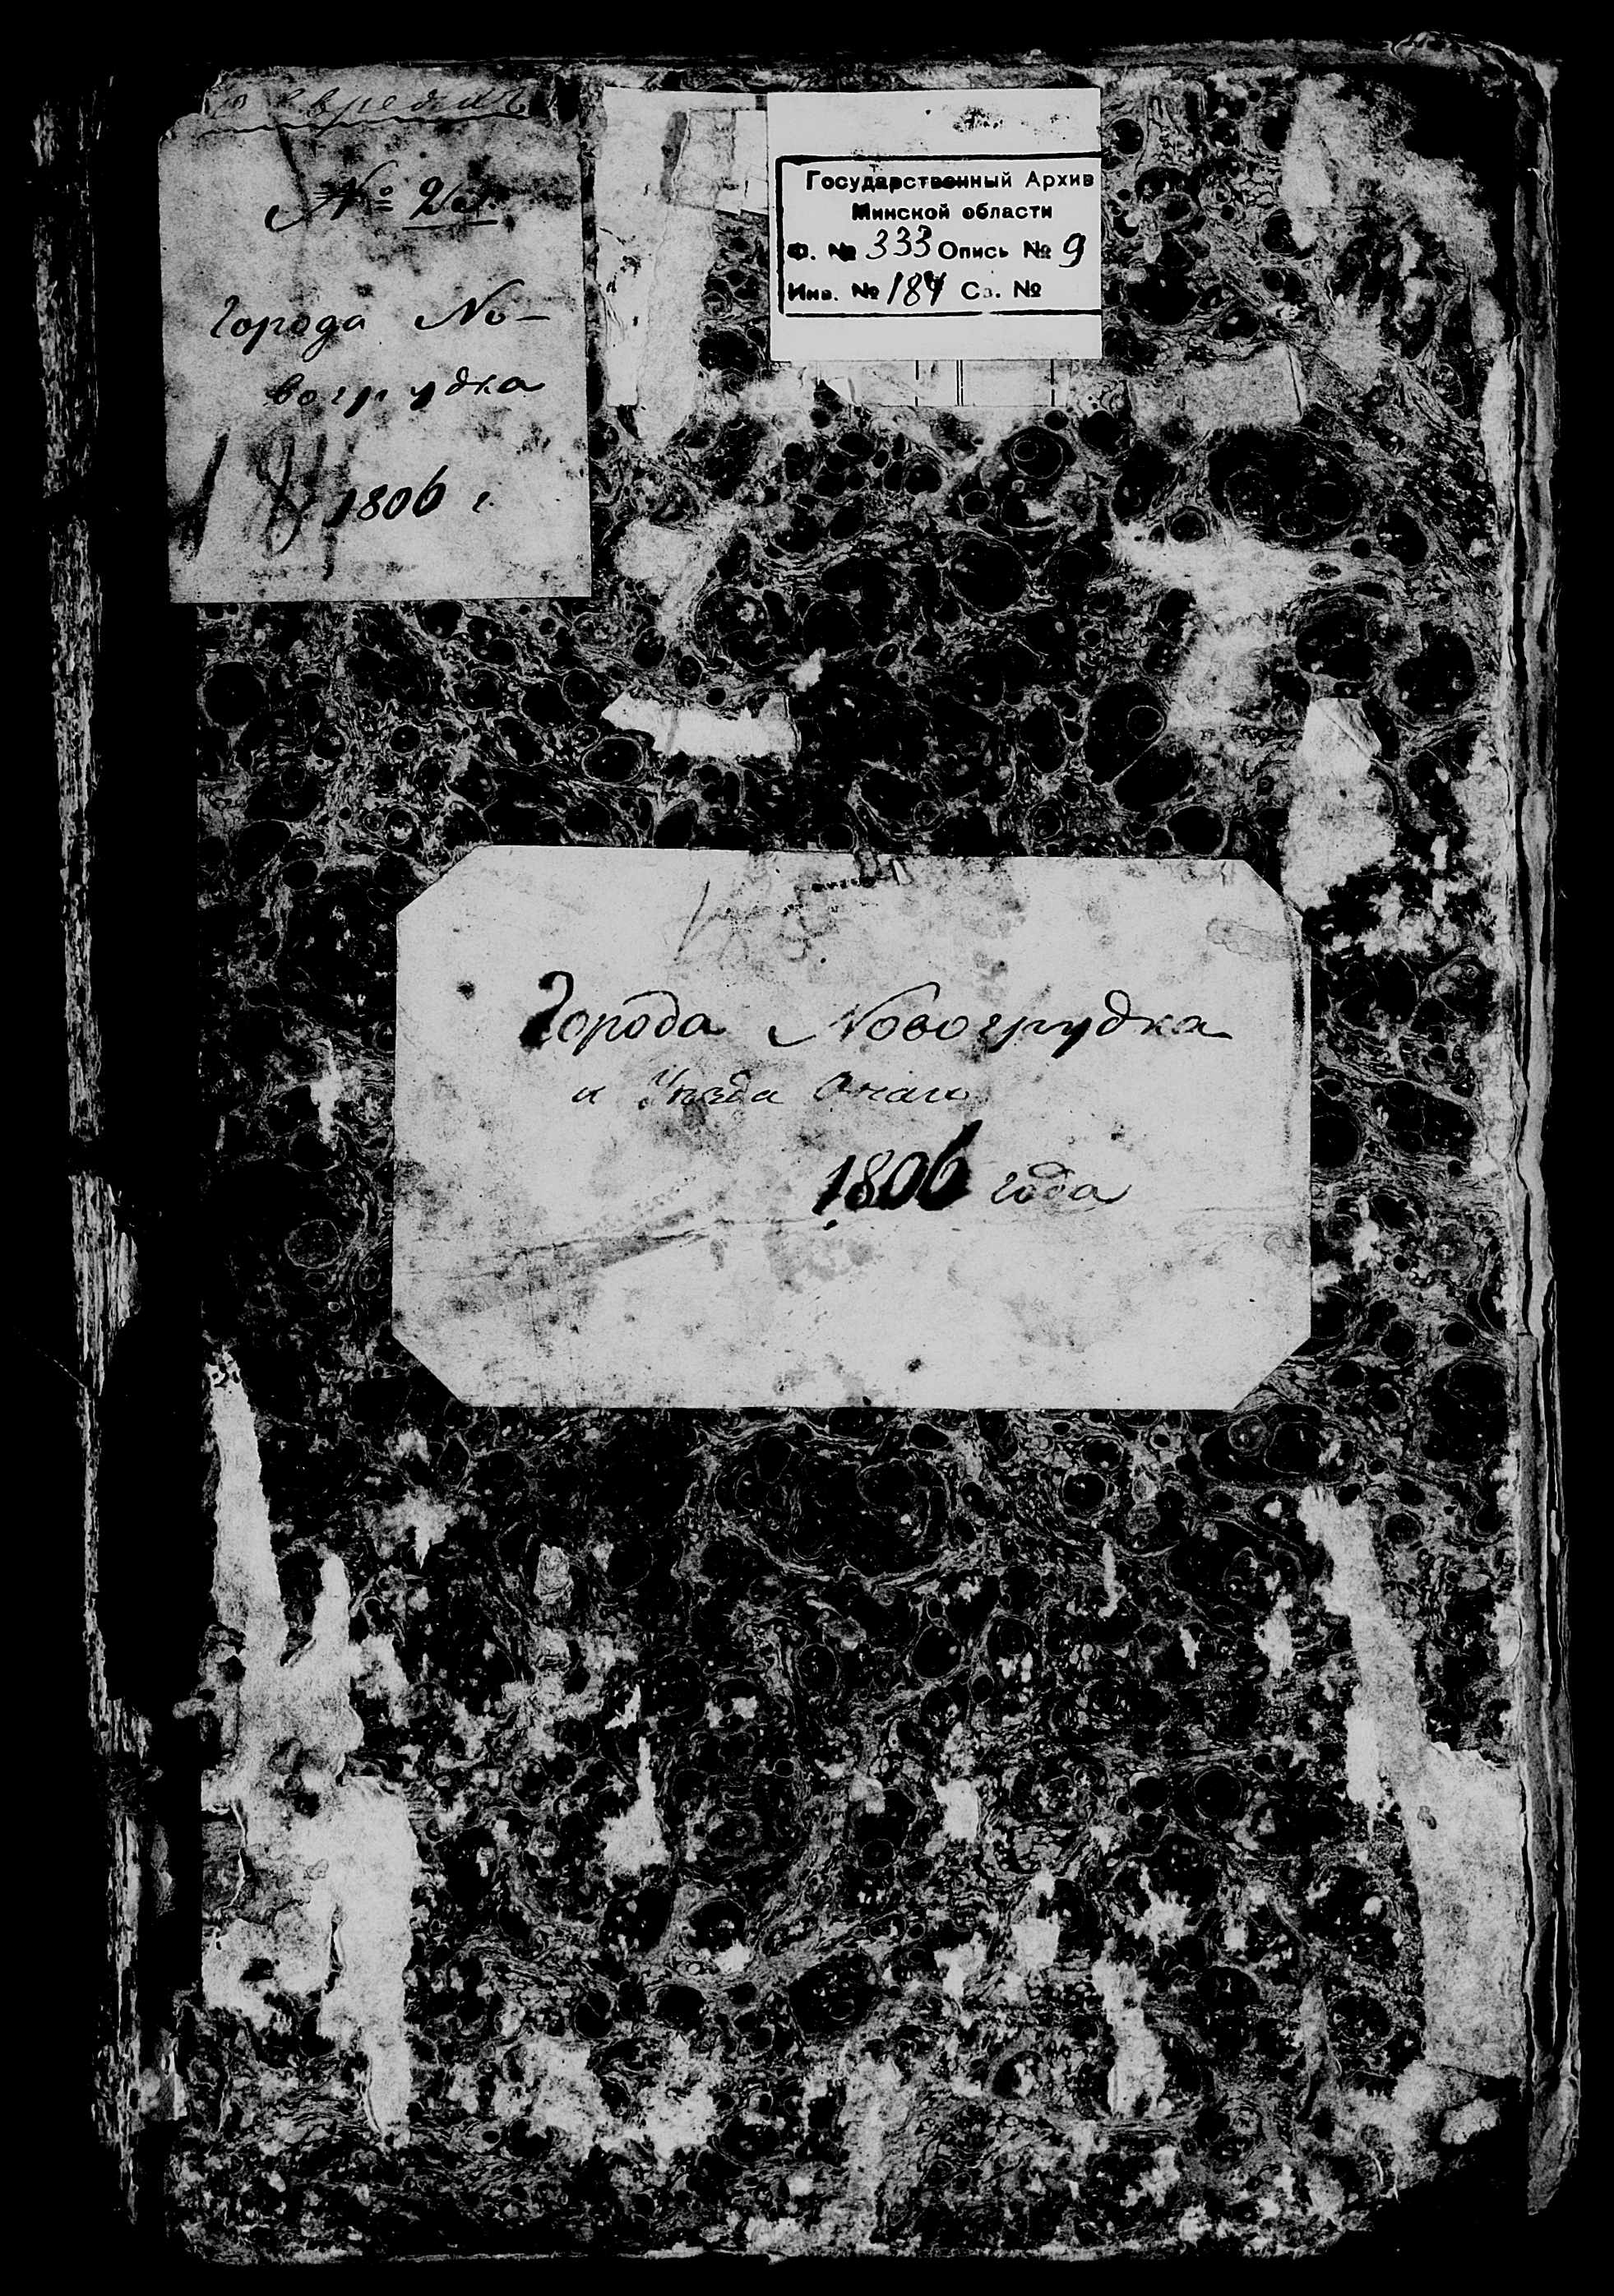 Города Но-
вогрудка
1806 г.
Государственный Архив
Минской области
Ф. № 333 Опись № 9
Инв. № 184 Св. №
Города Новогрудка
и Уезда Онаго
1806 года